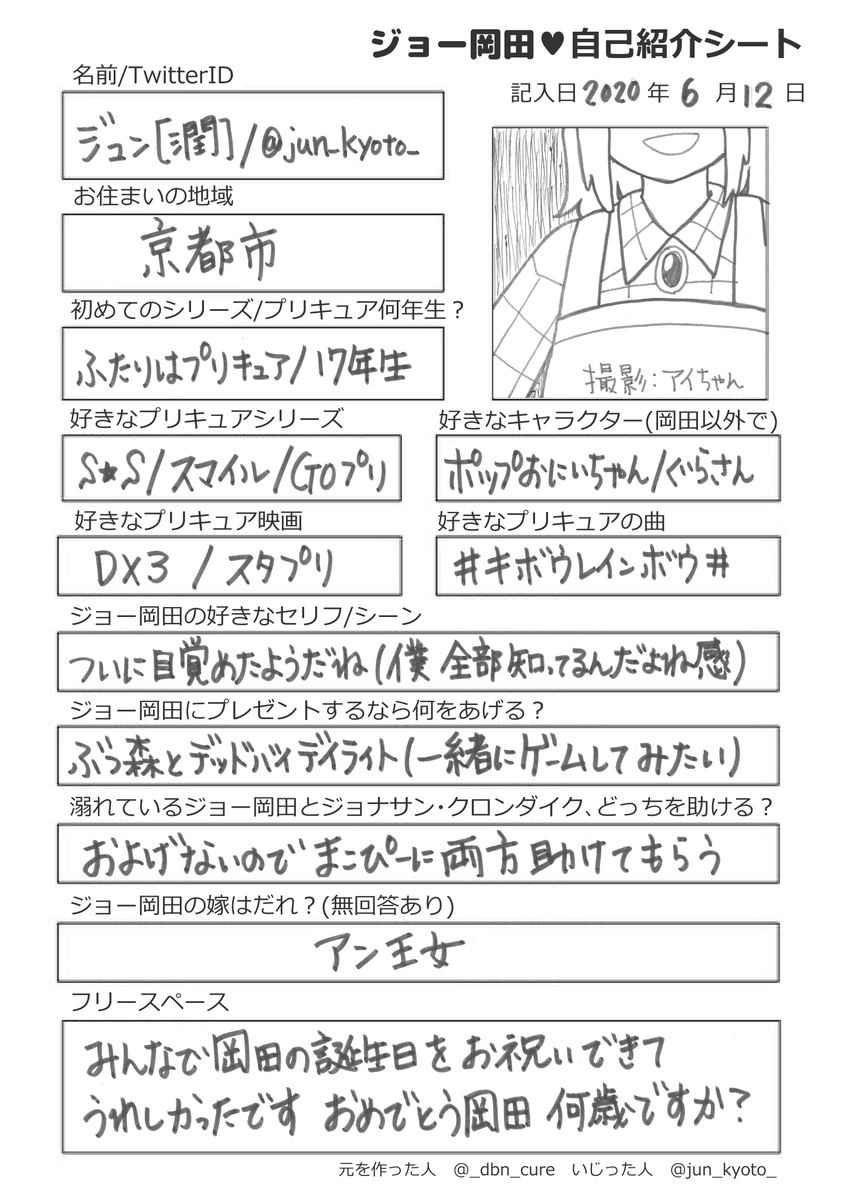 ジョー岡田♥自己紹介シート
記入日2020年6月12日
名前/TwitterID
ジュン[潤]/@jun_kyoto_
お住まいの地域
京都市
初めてのシリーズ/プリキュア何年生？
ふたりはプリキュア/17年生
撮影:アイちゃん
好きなプリキュアシリーズ
S★S/スマイル/GOプリ
好きなキャラクター(岡田以外で)
ポップおにいちゃん/ぐらさん
好きなプリキュア映画
DX3/スタプリ
好きなプリキュアの曲
#キボウレインボウ#
ジョー岡田の好きなセリフ/シーン
ついに目覚めたようだね(僕全部知ってるんだよね感)
ジョー岡田にプレゼントするなら何をあげる？
ぶつ森とデッドバイデイライト(一緒にゲームしてみたい)
溺れているジョー岡田とジョナサン・クロンダイク、どっちを助ける？
およげないのでまこぴーに両方助けてもらう
ジョー岡田の嫁はだれ？(無回答あり)
アン王女
フリースペース
みんなで岡田の誕生日をお祝いできて
うれしかったです おめでとう岡田 何歳ですか？
元を作った人 @_dbn_cure いじった人 @jun_kyoto_